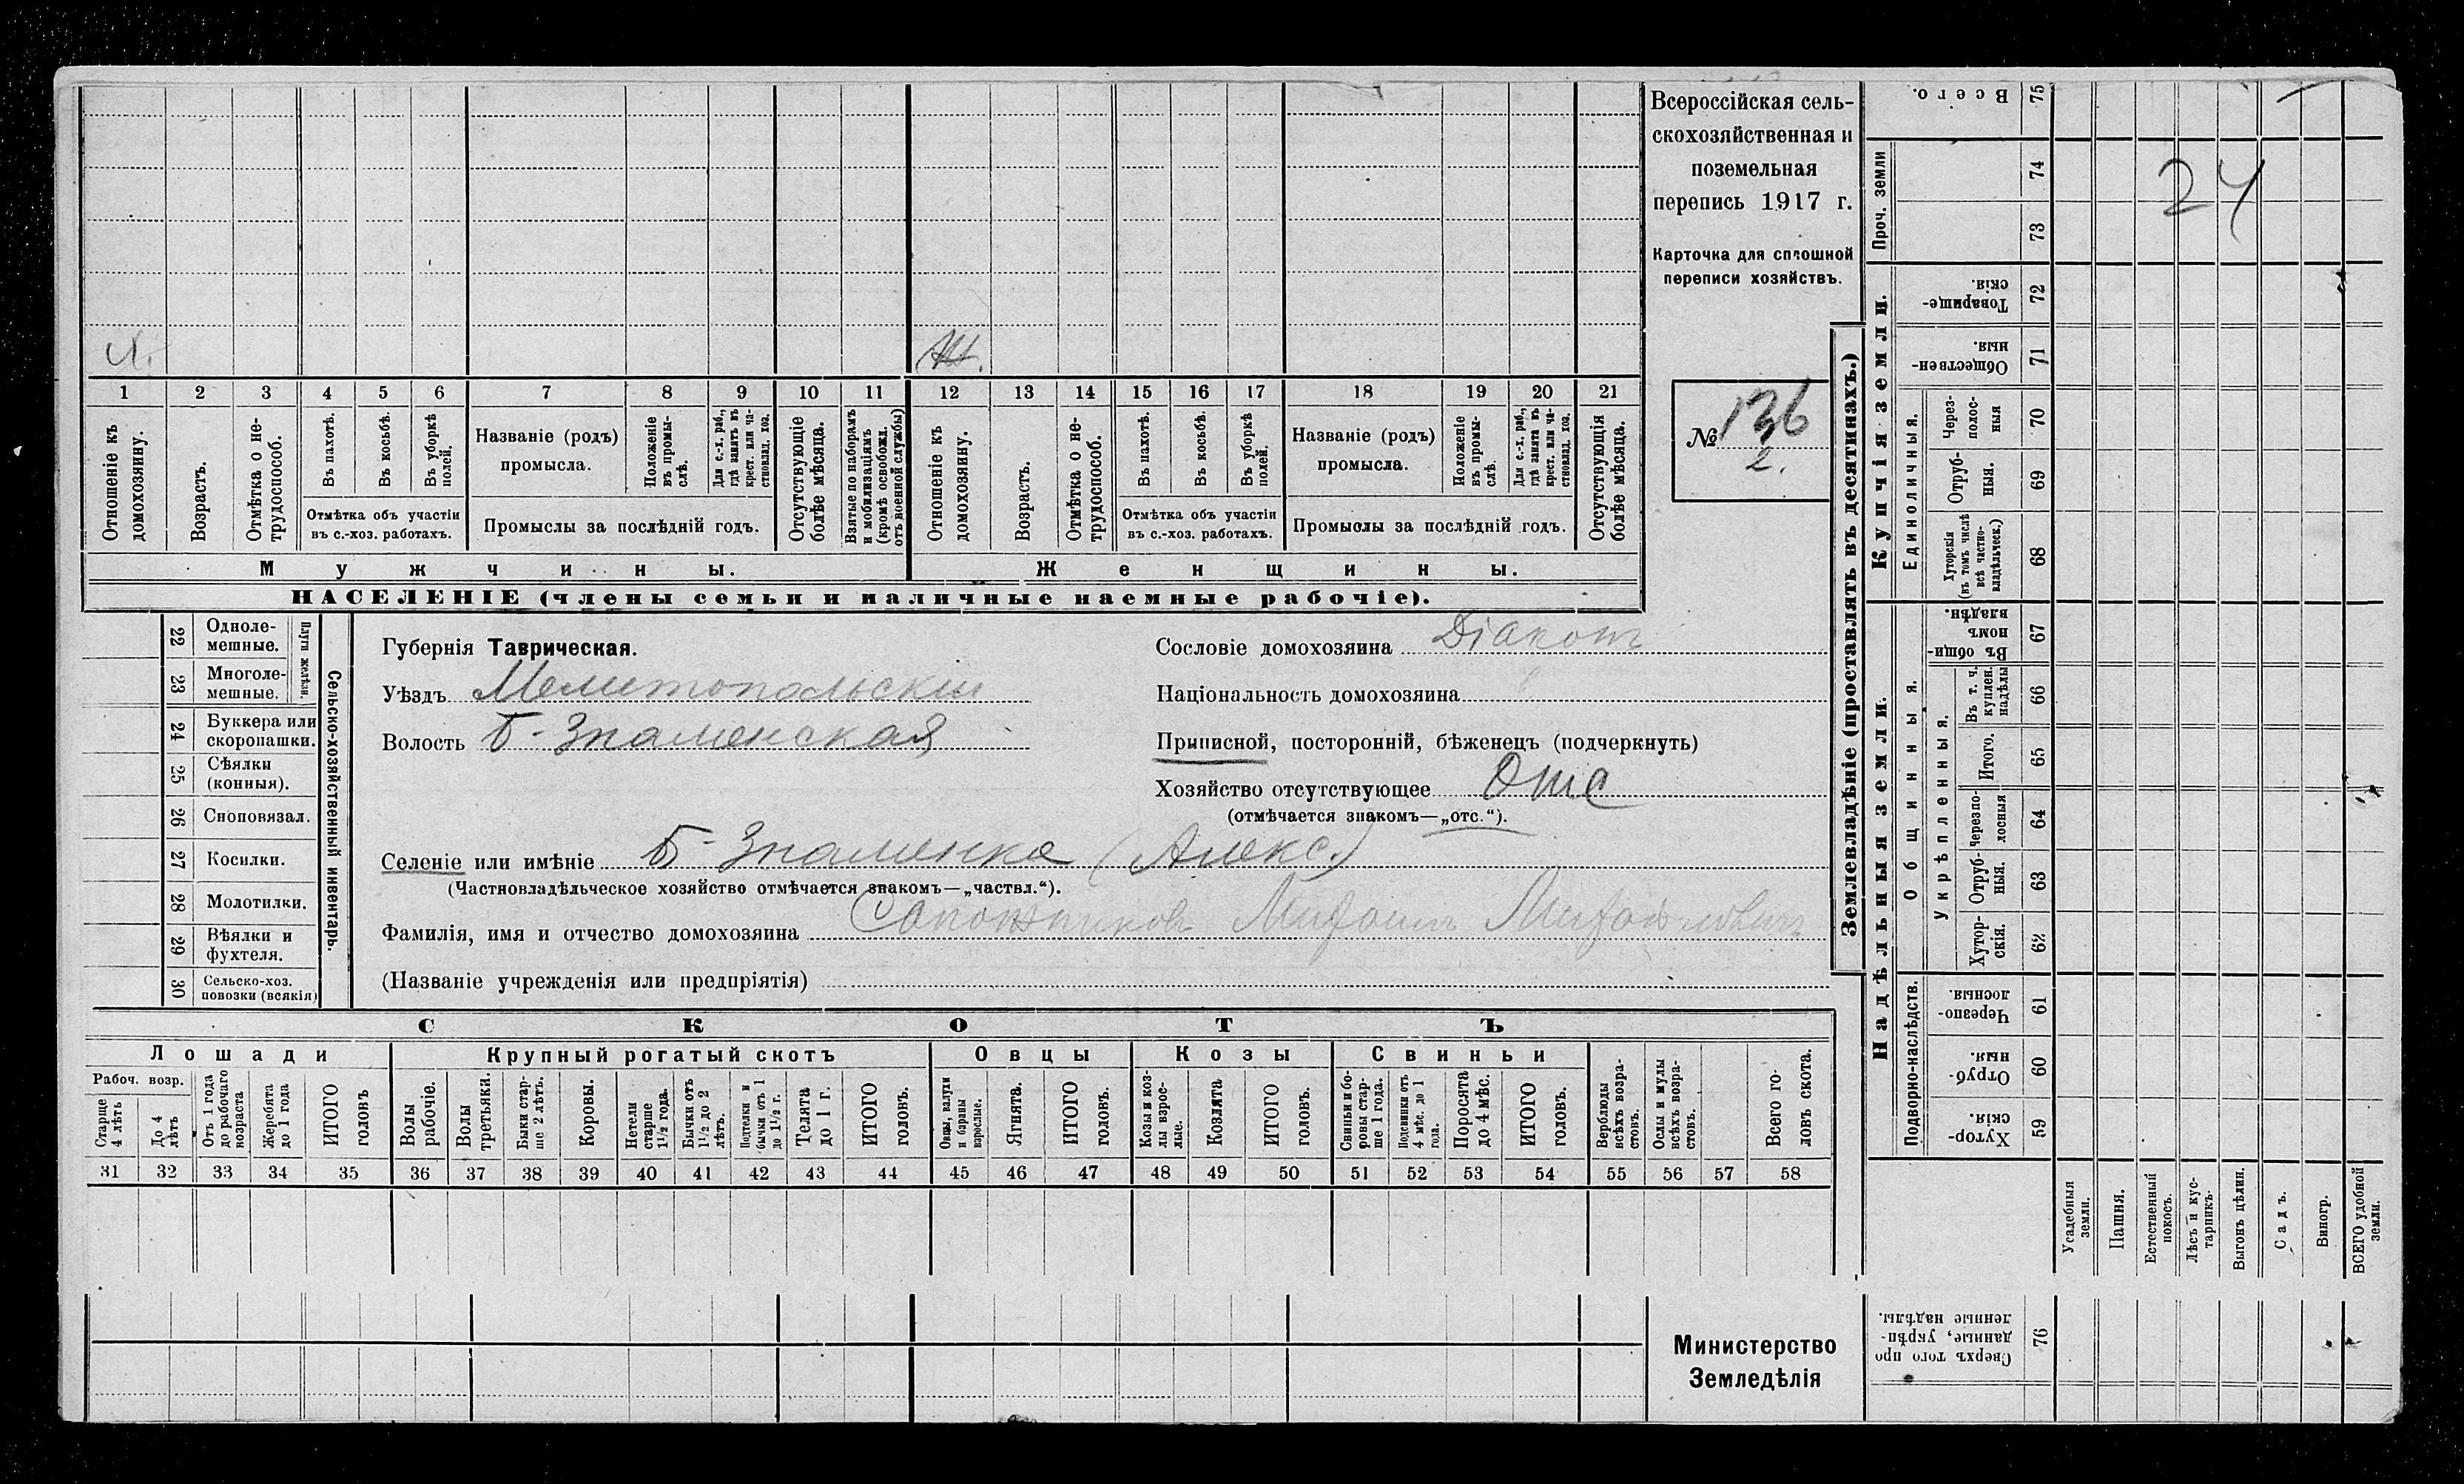 Всероссійская сель-
скохозяйственная и
поземельная
перепись 1917 г.
Карточка для сплошной
переписи хозяйствъ.
№ 136
2.
М. Ж.
1 2 3 4 5 6 7 8 9 10 11 12 13 14 15 16 17 18 19 20 21
Отношеніе къ домохозяину.
Возрастъ.
Отмѣтка о не-трудоспособ.
Въ пахотѣ.
Въ косьбѣ.
Въ уборкѣ полей.
Отмѣтка объ участіи
въ с.-хоз. работахъ.
Названіе (родъ)
промысла.
Положеніе въ промы-слѣ.
Для с.-х. раб., гдѣ занятъ въ крест. или ча-стновлад. хоз.
Промыслы за послѣдній годъ.
Отсутствующіе болѣе мѣсяца.
Взятые по наборамъ и мобилизаціямъ (кромѣ освобожд. отъ военной службы)
Отношеніе къ домохозяину.
Возрастъ.
Отмѣтка о не-трудоспособ.
Въ пахотѣ.
Въ косьбѣ.
Въ уборкѣ полей.
Отмѣтка объ участіи
въ с.-хоз. работахъ.
Названіе (родъ)
промысла.
Положеніе въ промы-слѣ.
Для с.-х. раб., гдѣ занята въ крест. или ча-стновлад. хоз.
Промыслы за послѣдній годъ.
Отсутствующія болѣе мѣсяца.
Мужчины. Женщины.
НАСЕЛЕНІЕ (члены семьи и наличные наемные рабочіе).
Сельско-хозяйственный инвентарь.
Плуги желѣзн.
22 Одноле-мешные.
23 Многоле-мешные.
24 Буккера или скоропашки.
25 Сѣялки (конныя).
26 Сноповязал.
27 Косилки.
28 Молотилки.
29 Вѣялки и фухтеля.
30 Сельско-хоз. повозки (всякія)
Губернія Таврическая.
Уѣздъ Мелитопольскій
Волость Б-Знаменская
Сословіе домохозяина Діаконъ
Національность домохозяина
Приписной, посторонній, бѣженецъ (подчеркнуть)
Хозяйство отсутствующее Отс
(отмѣчается знакомъ—„отс.“).
Селеніе или имѣніе Б-Знаменка (Алекс.)
(Частновладѣльческое хозяйство отмѣчается знакомъ—„частвл.“).
Фамилія, имя и отчество домохозяина Сапожниковъ Михаилъ Михайловичъ
(Названіе учрежденія или предпріятія)
СКОТЪ
Лошади Крупный рогатый скотъ Овцы Козы Свиньи
Рабоч. возр.
Старше 4 лѣтъ
До 4 лѣтъ
Отъ 1 года до рабочаго возраста
Жеребята до 1 года
ИТОГО головъ
Волы рабочіе.
Волы третьяки.
Быки стар-ше 2 лѣтъ.
Коровы.
Нетели старше 1½ года.
Бычки отъ 1½ до 2 лѣтъ.
Подтелки и бычки отъ 1 до 1½ г.
Телята до 1 г.
ИТОГО головъ.
Овцы, валухи и бараны взрослые.
Ягнята.
ИТОГО головъ.
Козы и коз-лы взрос-лые.
Козлята
ИТОГО головъ.
Свиньи и бо-ровы стар-ше 1 года.
Подсвинки отъ 4 мѣс. до 1 года.
Поросята до 4 мѣс.
ИТОГО головъ.
Верблюды всѣхъ возра-стовъ.
Ослы и мулы всѣхъ возра-стовъ.
Всего го-ловъ скота.
31 32 33 34 35 36 37 38 39 40 41 42 43 44 45 46 47 48 49 50 51 52 53 54 55 56 57 58
Министерство
Земледѣлія
Землевладѣніе (проставлять въ десятинахъ.)
24
Всего. 75
Проч. земли
74
73
Купчія земли.
Товарище-скія. 72
Обществен-ныя. 71
Единоличныя.
Через-полос-ныя 70
Отруб-ныя. 69
Хуторскія (въ томъ числѣ всѣ частно-владѣльческ.) 68
Надѣльныя земли.
Общинныя.
Въ общи-номъ владѣн. 67
Укрѣпленныя.
Въ т. ч. куплен. надѣлы 66
Итого. 65
Черезпо-лосныя 64
Отруб-ныя. 63
Хутор-скія. 62
Подворно-наслѣдств.
Черезпо-лосныя. 61
Отруб-ныя. 60
Хутор-скія. 59
Усадебныя земли.
Пашня.
Естественный покосъ.
Лѣсъ и кус-тарникъ.
Выгонъ цѣлин.
Садъ.
Виногр.
ВСЕГО удобной земли.
Сверхъ того про-данные, укрѣп-ленные надѣлы. 76